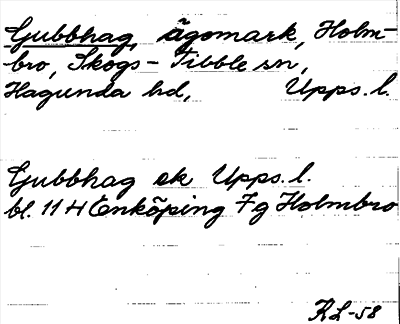 Gubbhag, ägomark, Holm-
bro, Skogs-Tibble sn,
Hagunda hd, Upps. l.
Gubbhag ek Upps. l.
bl. 11 H Enköping 7g Holmbro
RL-58